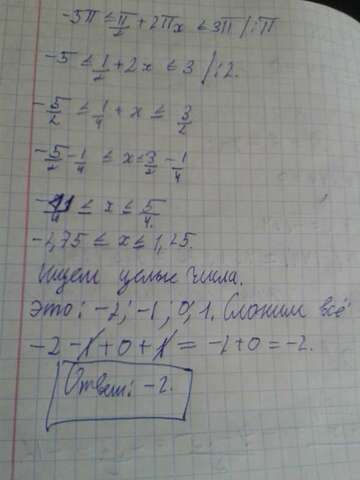 -5π ≤ π/2 + 2πx ≤ 3π /:π
-5 ≤ 1/2 + 2x ≤ 3 /:2.
-5/2 ≤ 1/4 + x ≤ 3/2
-5/2 - 1/4 ≤ x ≤ 3/2 - 1/4
-11/4 ≤ x ≤ 5/4.
-2,75 ≤ x ≤ 1,25.
Ищем целые числа.
Это: -2; -1; 0; 1. Сложим всё
-2 - 1 + 0 + 1 = -2 + 0 = -2.
Ответ: -2.